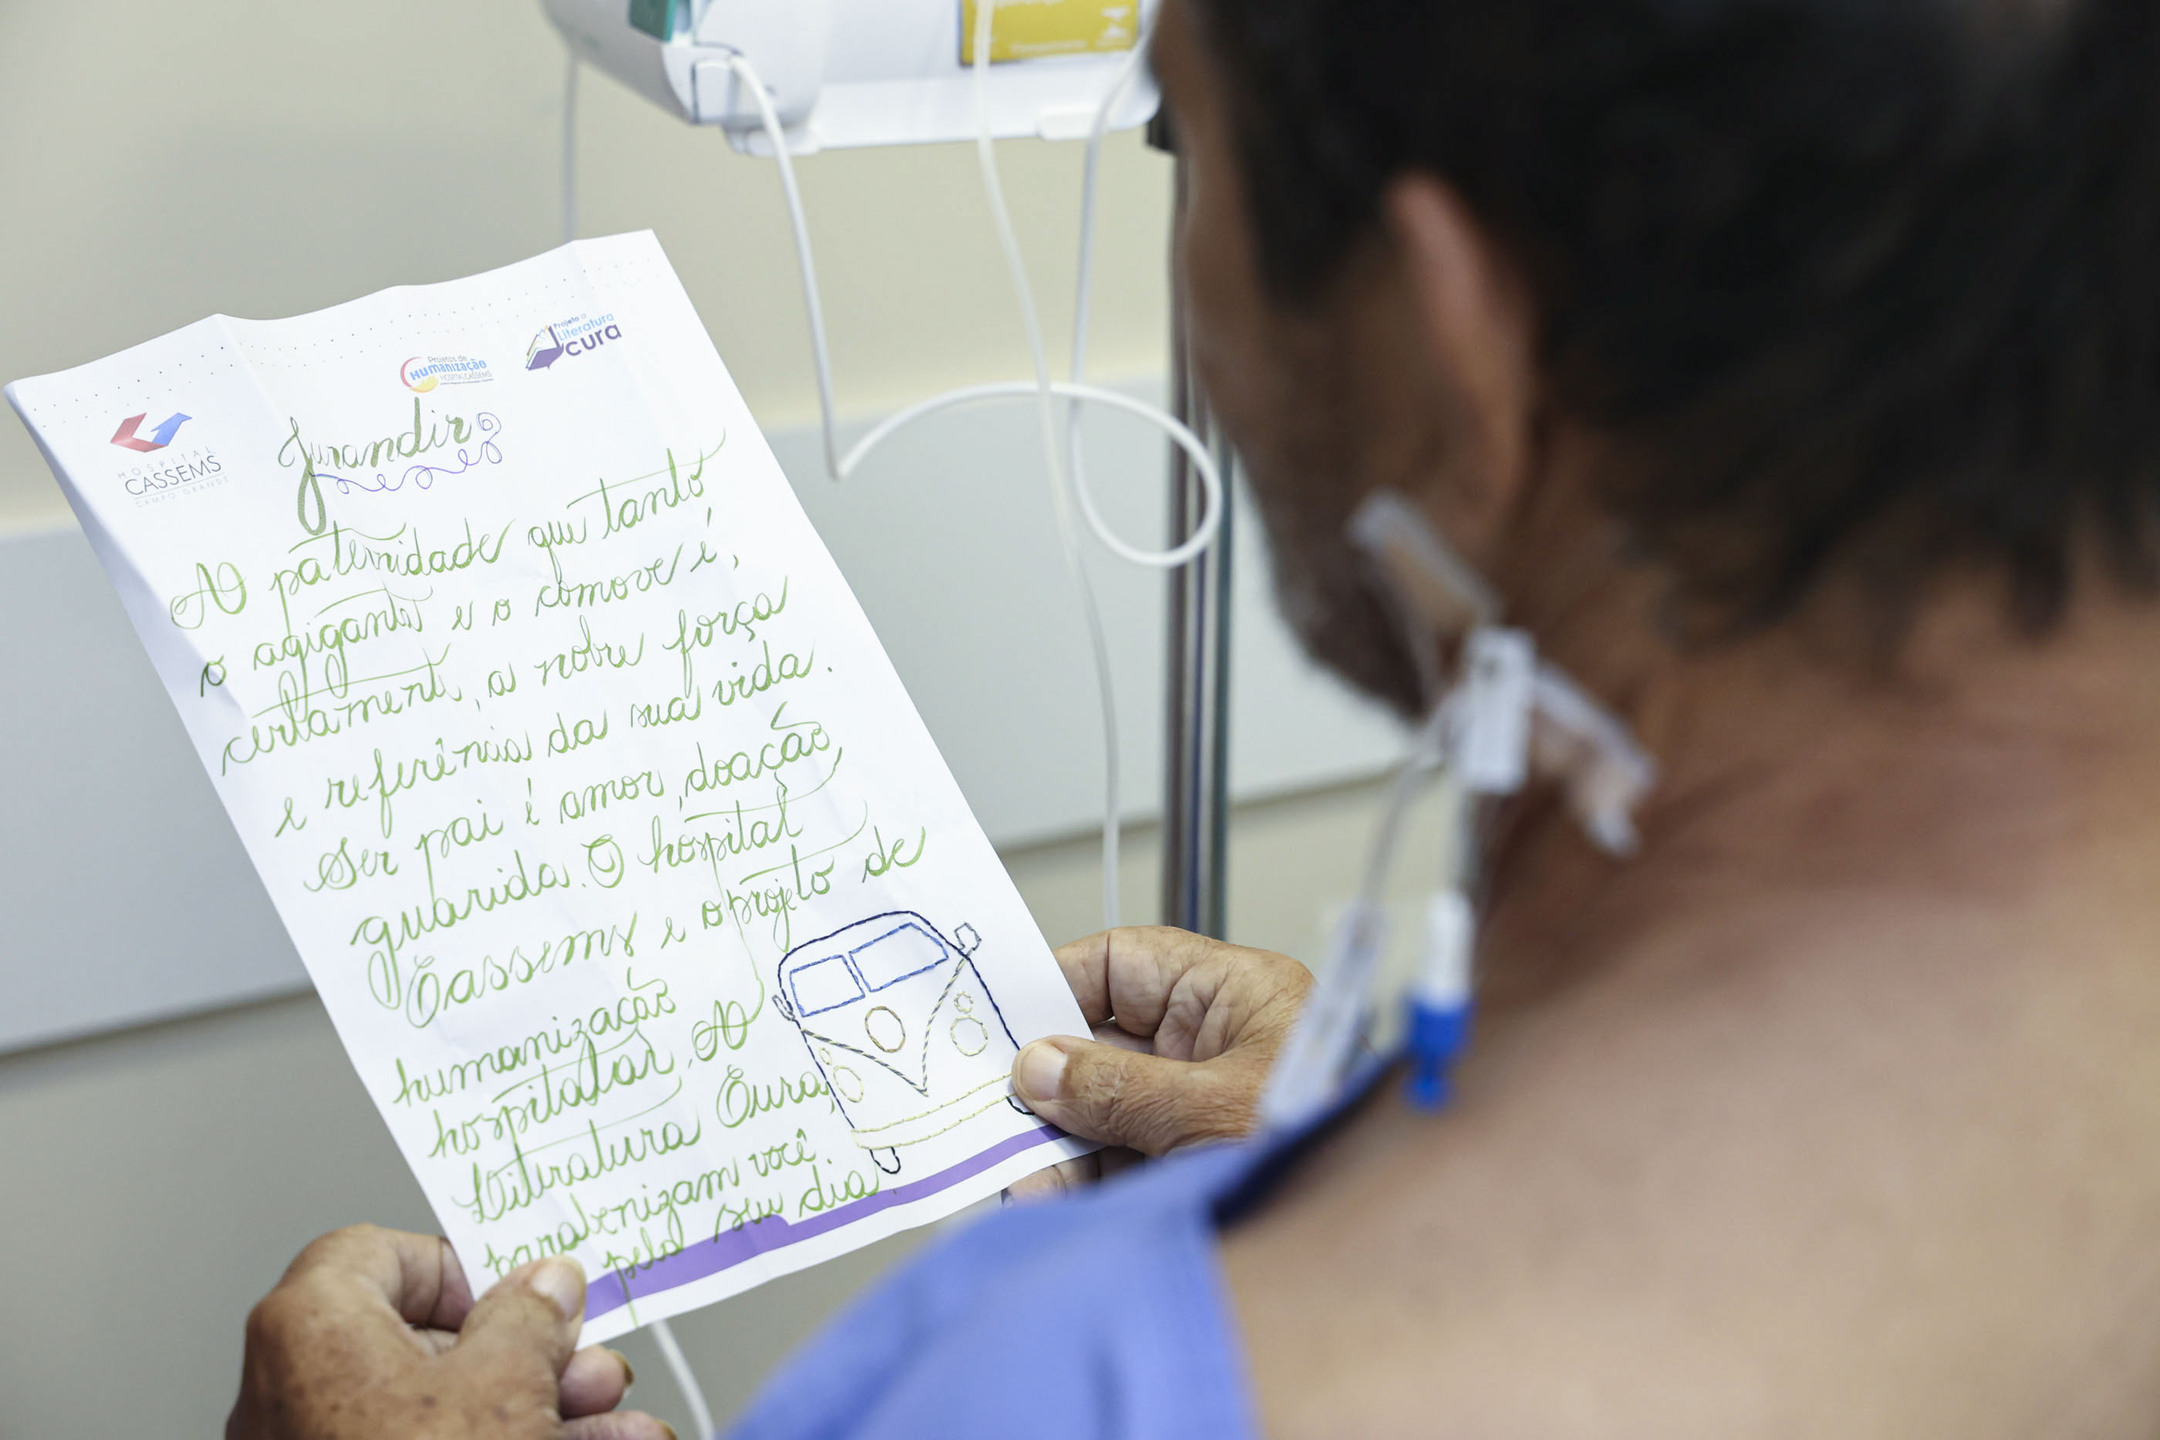 HOSPITAL
CASSEMS
CAMPO GRANDE
Projetos de
Humanização
HOSPITAL CASSEMS
Projeto a
Literatura
cura
Jurandir
A paternidade que tanto
o agiganta e o comove é,
certamente, a nobre força
e referência da sua vida.
Ser pai é amor, doação,
guarida. O hospital
Cassems e o projeto de
humanização
hospitalar, A
Literatura Cura,
parabenizam você
pelo seu dia